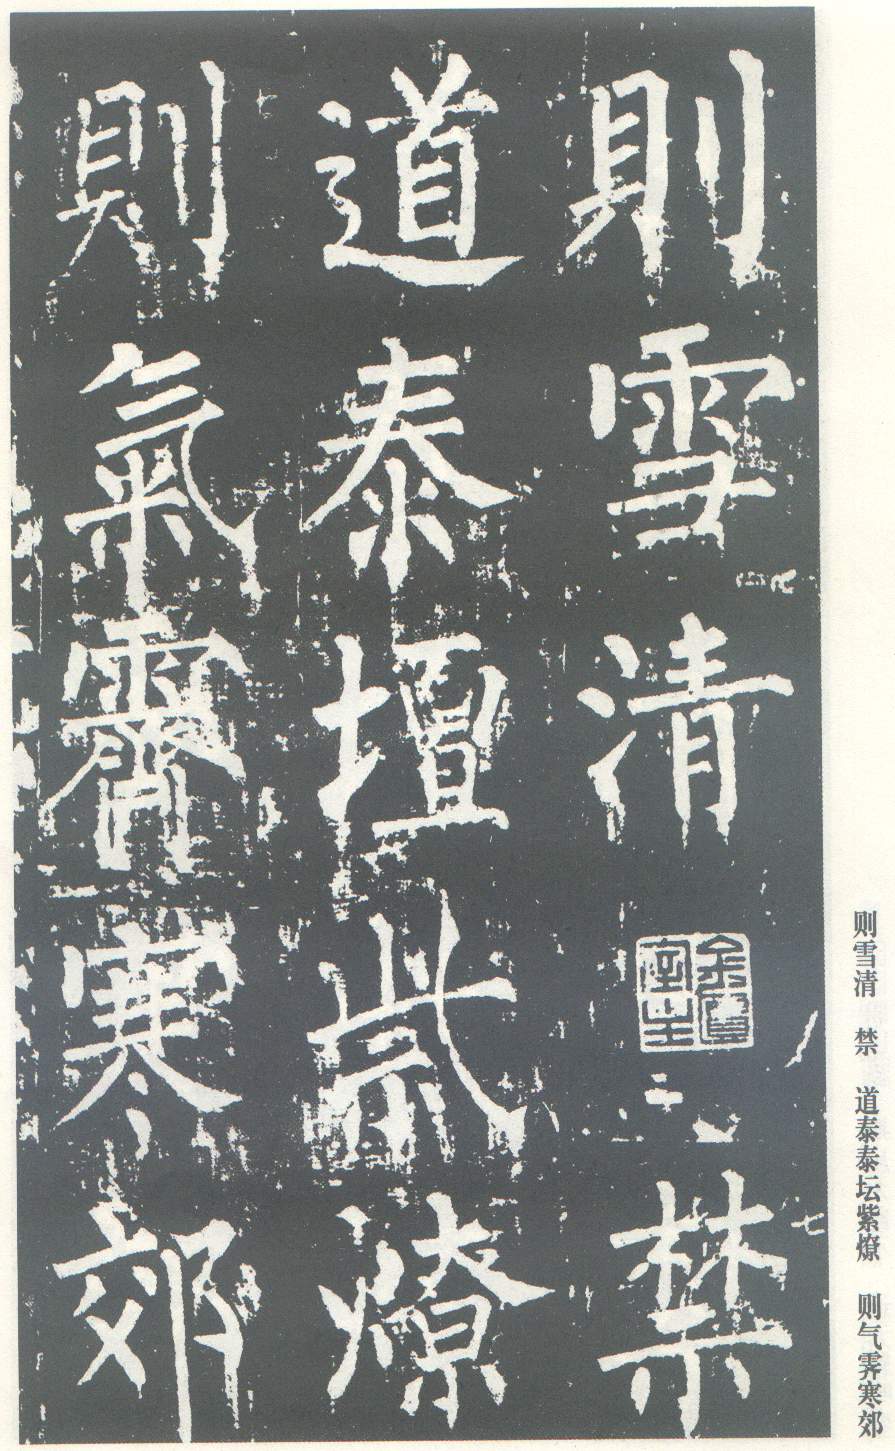 则雪清 禁 道泰泰坛紫燎 则气霁寒郊
則雪清禁
道泰壇紫燎
則氣霽寒郊